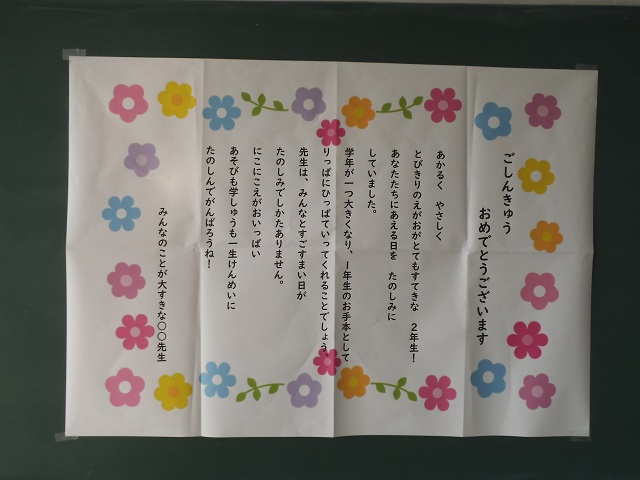 ごしんきゅう
おめでとうございます
あかるく やさしく
とびきりのえがおがとてもすてきな 2年生!
あなたたちにあえる日を たのしみに
していました。
学年が一つ大きくなり、1年生のお手本として
りっぱにひっぱていってくれることでしょう。
先生は、みんなとすごすまい日が
たのしみでしかたありません。
にこにこえがおいっぱい
あそびも学しゅうも一生けんめいに
たのしんでがんばろうね!
みんなのことが大すきな〇〇先生